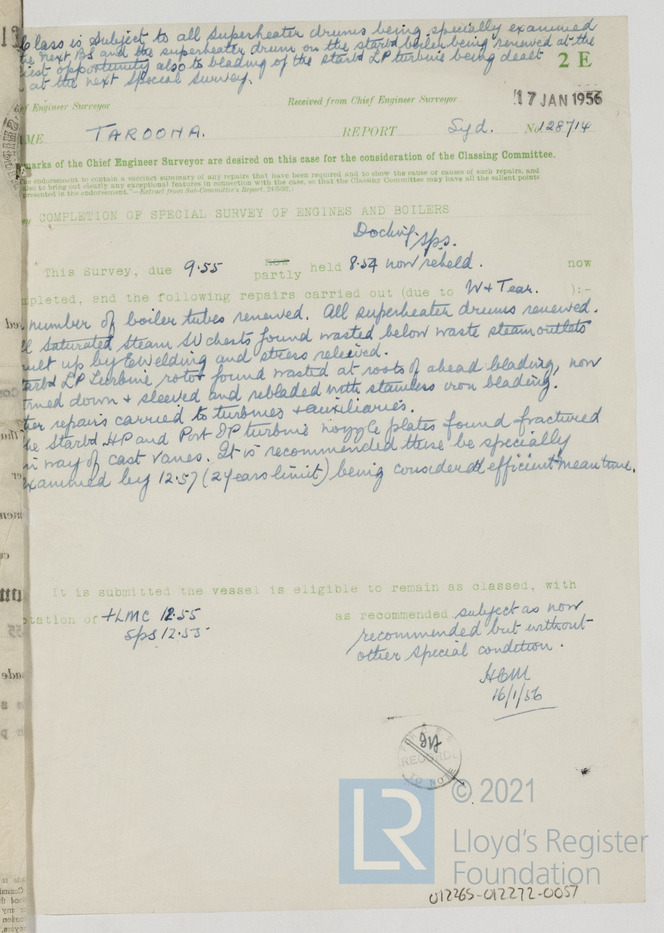 Class is subject to all superheater drums being specially examined
next BS and the superheater drum on the starbd boiler being renewed at the
opportunity also to blading of the starbd LP turbine being dealt
at the next Special Survey.
2 E
Engineer Surveyor
Received from Chief Engineer Surveyor
17 JAN 1956
TAROONA.
REPORT
Syd.
No 128714
marks of the Chief Engineer Surveyor are desired on this case for the consideration of the Classing Committee.
endorsement to contain a succinct summary of any repairs that have been required and to show the cause or causes of such repairs, and
to bring out clearly any exceptional features in connection with the case, so that the Classing Committee may have all the salient points
presented in the endorsement."—Extract from Sub-Committee's Report,
COMPLETION OF SPECIAL SURVEY OF ENGINES AND BOILERS
Docking. Sps.
This Survey, due 9.55 now partly held 8.54 now reheld. now
pleted, and the following repairs carried out (due to W + Tear. ):-
number of boiler tubes renewed. All superheater drums renewed.
Saturated Steam SV chests found wasted below waste steam outlets
up by EWelding and stress relieved.
LP turbine rotor found wasted at roots of ahead blading, now
turned down + sleeved and rebladed with stainless iron blading.
repairs carried to turbines + auxiliaries.
The Starbd HP and Port IP turbine nozzle plates found fractured
in way of cast vanes. It is recommended these be specially
examined by 12.57 (2 years limit) being considered efficient meantime.
It is submitted the vessel is eligible to remain as classed, with
tation of +LMC 12.55
Sps 12.55
as recommended subject as now
recommended but without
other special condition.
HCM
16/1/56
RECORDS
TO NOTE
LR
© 2021
Lloyd's Register
Foundation
012265-012272-0057